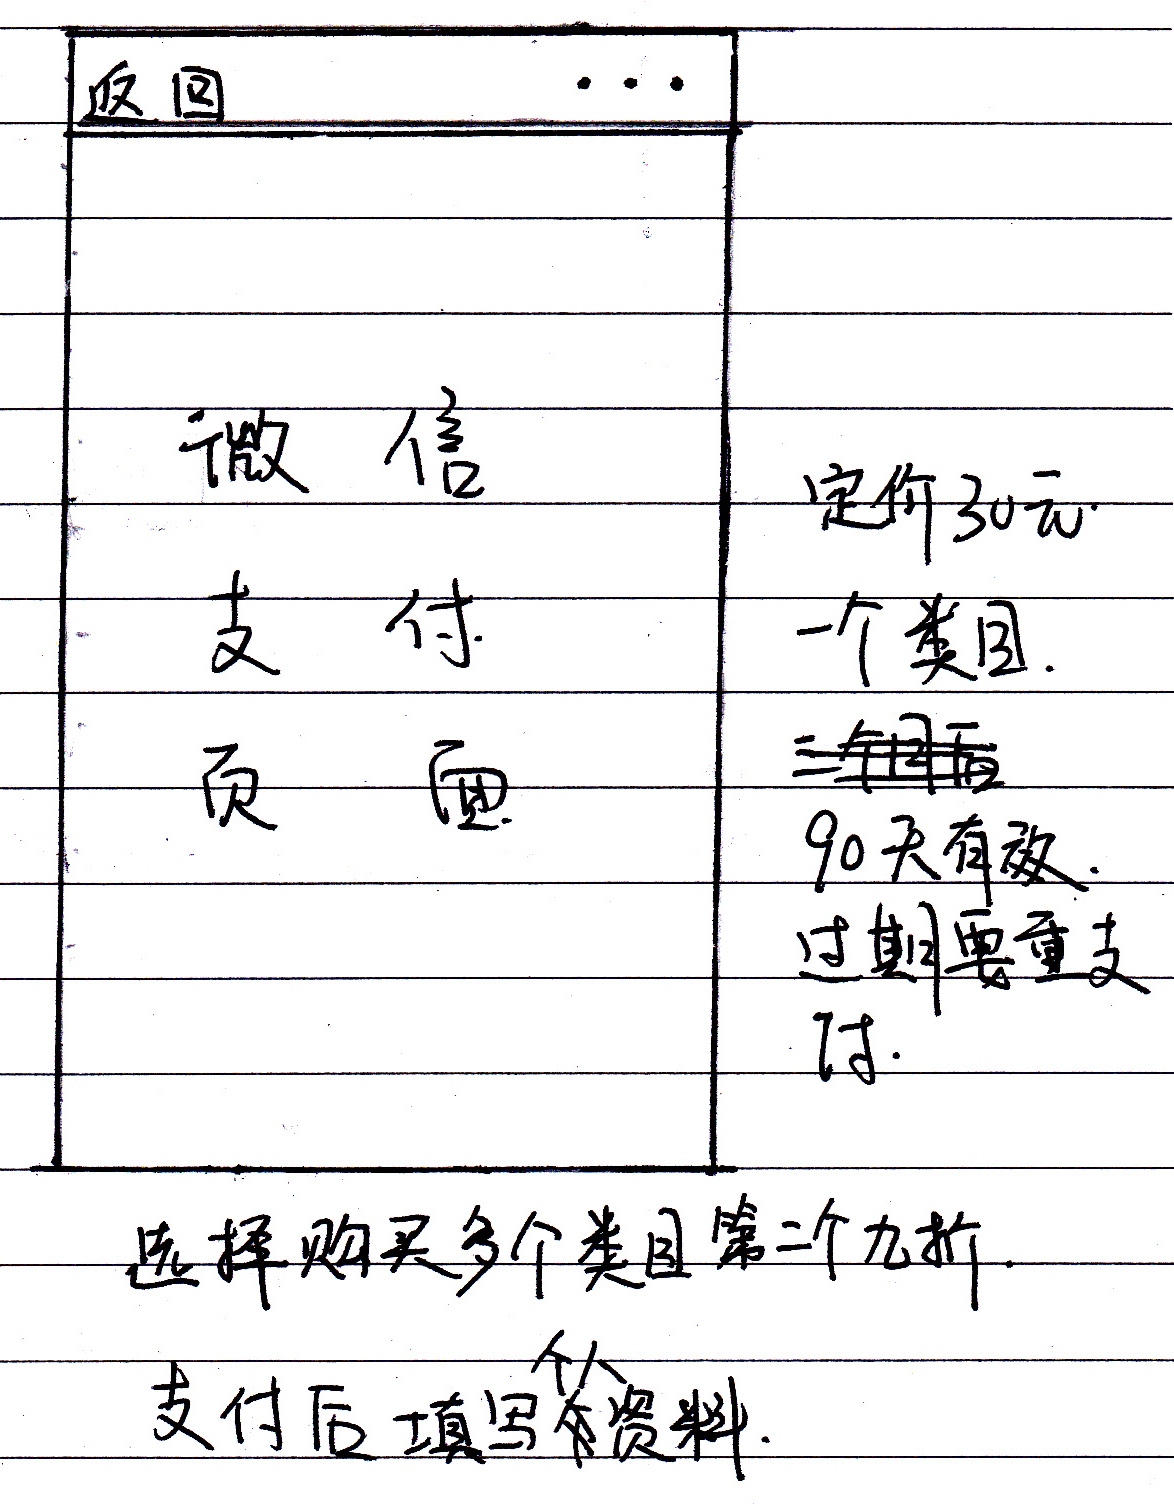 返回 ...
微信
支付
页面.
定价30元.
一个类目.
90天有效.
过期要重支
付.
选择购买多个类目第二个九折.
个人
支付后填写资料.